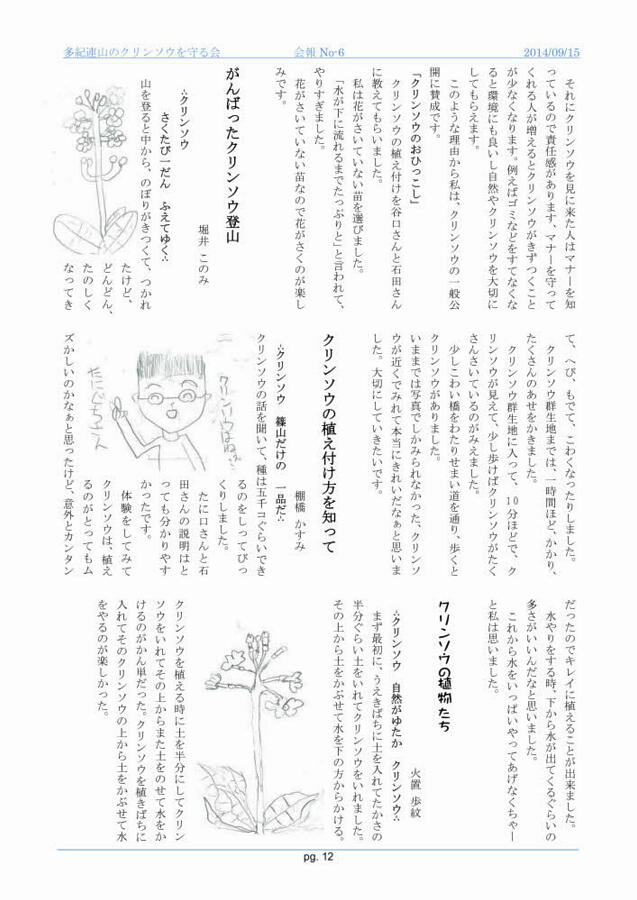 多紀連山のクリンソウを守る会
会報 No-6
2014/09/15
それにクリンソウを見に来た人はマナーを知
っているので責任感があります、マナーを守って
くれる人が増えるとクリンソウがきずつくこと
が少なくなります。例えばゴミなどをすてなくな
ると環境にも良いし自然やクリンソウを大切に
してもらえます。
このような理由から私は、クリンソウの一般公
開に賛成です。
「クリンソウのおひっこし」
クリンソウの植え付けを谷口さんと石田さん
に教えてもらいました。
私は花がさいていない苗を選びました。
「水が下に流れるまでたっぷりと」と言われて、
やりすぎました。
花がさいていない苗なので花がさくのが楽し
みです。
がんばったクリンソウ登山
堀井 このみ
∴クリンソウ
さくたび一だん ふえてゆく∴
山を登ると中から、のぼりがきつくて、つかれ
たけど、
どんどん、
たのしく
なってき
て、へび、もでて、こわくなったりしました。
クリンソウ群生地までは、一時間ほど、かかり、
たくさんのあせをかきました。
クリンソウ群生地に入って、10分ほどで、ク
リンソウが見えて、少し歩けばクリンソウがたく
さんさいているのがみえました。
少しこわい橋をわたりせまい道を通り、歩くと
クリンソウがありました。
いままでは写真でしかみられなかった、クリンソ
ウが近くでみれて本当にきれいだなぁと思いま
した。大切にしていきたいです。
クリンソウの植え付け方を知って
棚橋 かすみ
∴クリンソウ 篠山だけの 一品だ∴
クリンソウの話を聞いて、種は五千コぐらいでき
るのをしってびっ
くりしました。
たに口さんと石
田さんの説明はと
っても分かりやす
かったです。
体験をしてみて
クリンソウは、植え
るのがとってもム
ズかしいのかなぁと思ったけど、意外とカンタン
クリンソウはね…
たにぐちさん
だったのでキレイに植えることが出来ました。
水やりをする時、下から水が出てくるぐらいの
多さがいいんだなと思いました。
これから水をいっぱいやってあげなくちゃー
と私は思いました。
クリンソウの植物たち
火置 歩紋
∴クリンソウ 自然がゆたか クリンソウ∴
まず最初に、うえきばちに土を入れてたかさの
半分ぐらい土をいれてクリンソウをいれました。
その上から土をかぶせて水を下の方からかける。
クリンソウを植える時に土を半分にしてクリン
ソウをいれてその上からまた土をのせて水をか
けるのがかん単だった。クリンソウを植きばちに
入れてそのクリンソウの上から土をかぶせて水
をやるのが楽しかった。
pg. 12